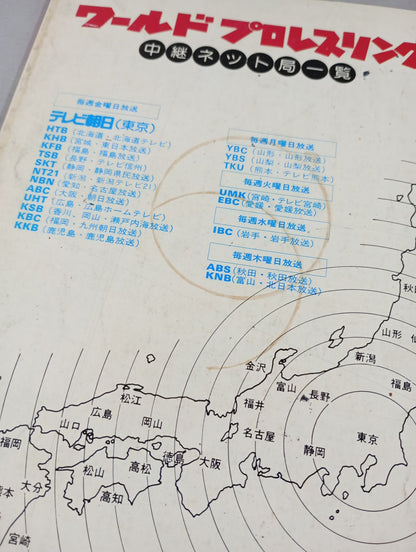 ワールド プロレスリング
中継ネット局一覧
毎週金曜日放送
テレビ朝日(東京)
HTB(北海道・北海道テレビ)
KHB(宮城・東日本放送)
KFB(福島・福島放送)
TSB(長野・テレビ信州)
SKT(静岡・静岡県民放送)
NT21(新潟・新潟テレビ21)
NBN(愛知・名古屋放送)
ABC(大阪・朝日放送)
UHT(広島・広島ホームテレビ)
KSB(香川、岡山・瀬戸内海放送)
KBC(福岡・九州朝日放送)
KKB(鹿児島・鹿児島放送)
毎週月曜日放送
YBC(山形・山形放送)
YBS(山梨・山梨放送)
TKU(熊本・テレビ熊本)
毎週火曜日放送
UMK(宮崎・テレビ宮崎)
EBC(愛媛・愛媛放送)
毎週水曜日放送
IBC(岩手・岩手放送)
毎週木曜日放送
ABS(秋田・秋田放送)
KNB(富山・北日本放送)
秋田
山形 仙
新潟
福島
金沢
富山
長野
福井
東京
静岡
名古屋
松江
広島
岡山
山口
徳島
大阪
福岡
松山
高松
高知
熊本
大分
宮崎